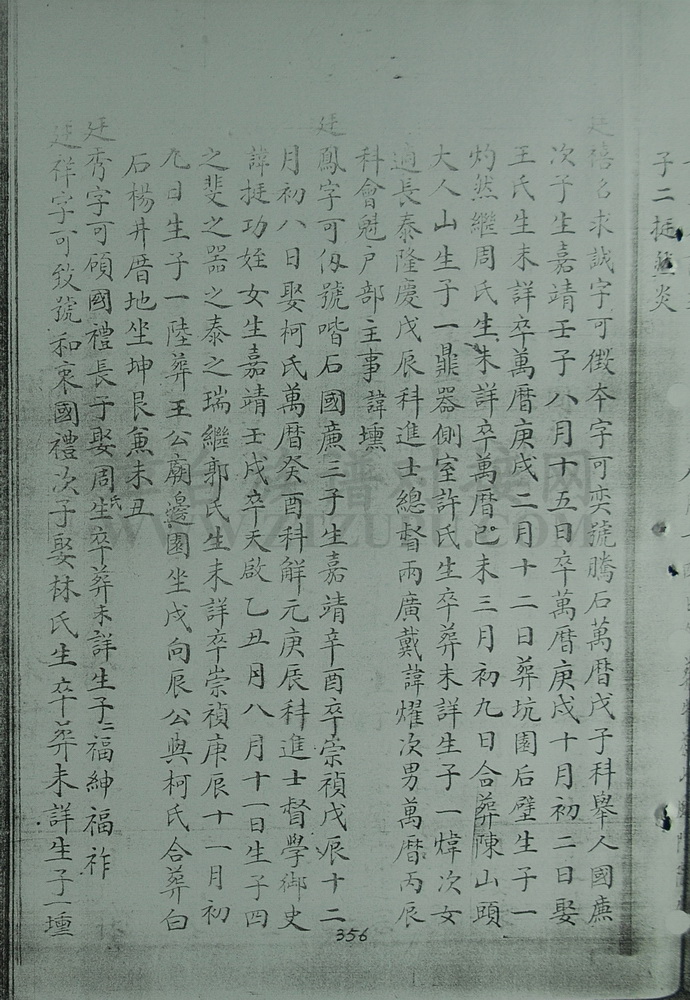 子二挺 炎
廷禧名求誠字可徵夲字可奕號騰石萬曆戊子科舉人國廉
次子生嘉靖壬子八月十五日卒萬曆庚戌十月初二日娶
王氏生未詳卒萬曆庚戌二月十二日葬坑園后壁生子一
灼然繼周氏生未詳卒萬曆己未三月初九日合葬陳山頭
大人山生子一鼎器側室許氏生卒葬未詳生子一煒次女
適長泰隆慶戊辰科進士總督兩廣戴諱燿次男萬曆丙辰
科會魁户部主事諱壎
廷鳳字可伋號喈石國廉三子生嘉靖辛酉卒崇禎戊辰十二
月初八日娶柯氏萬曆癸酉科解元庚辰科進士督學御史
諱挺功姪女生嘉靖壬戌卒天啟乙丑月八月十一日生子四
之斐之器之泰之瑞繼郭氏生未詳卒崇禎庚辰十一月初
九日生子一陸葬王公廟邊園坐戌向辰公與柯氏合葬白
石楊井厝地坐坤艮兼未丑
廷秀字可碩國禮長子娶周氏生卒葬未詳生子二福紳福祚
廷祥字可致號和東國禮次子娶林氏生卒葬未詳生子一壇
356